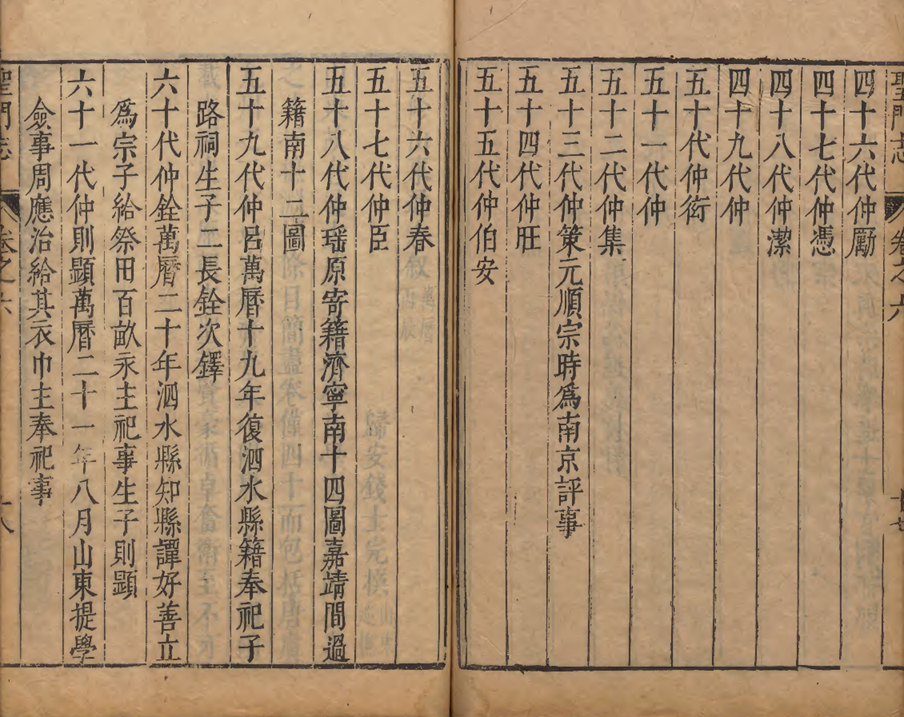 聖門志 卷之六
四十六代仲勵
四十七代仲憑
四十八代仲潔
四十九代仲
五十代仲衍
五十一代仲
五十二代仲集
五十三代仲策元順宗時爲南京評事
五十四代仲旺
五十五代仲伯安
五十六代仲春
五十七代仲臣
五十八代仲瑶原寄籍濟寧南十四圖嘉靖間過
籍南十二圖
五十九代仲呂萬曆十九年復泗水縣籍奉祀子
路祠生子二長銓次鐸
六十代仲銓萬曆二十年泗水縣知縣譚好善立
爲宗子給祭田百畝永主祀事生子則顯
六十一代仲則顯萬曆二十一年八月山東提學
僉事周應治給其衣巾主奉祀事
聖門志 卷之六